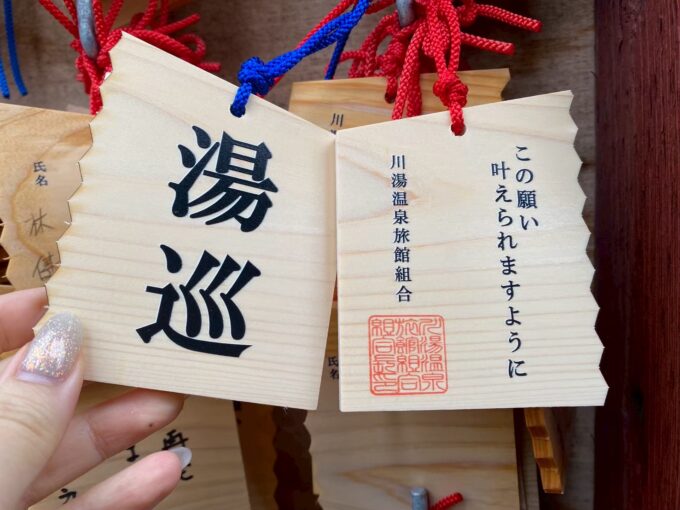 湯巡
この願い
叶えられますように
川湯温泉旅館組合
川湯温泉
旅館組合
氏名
林
氏名
川